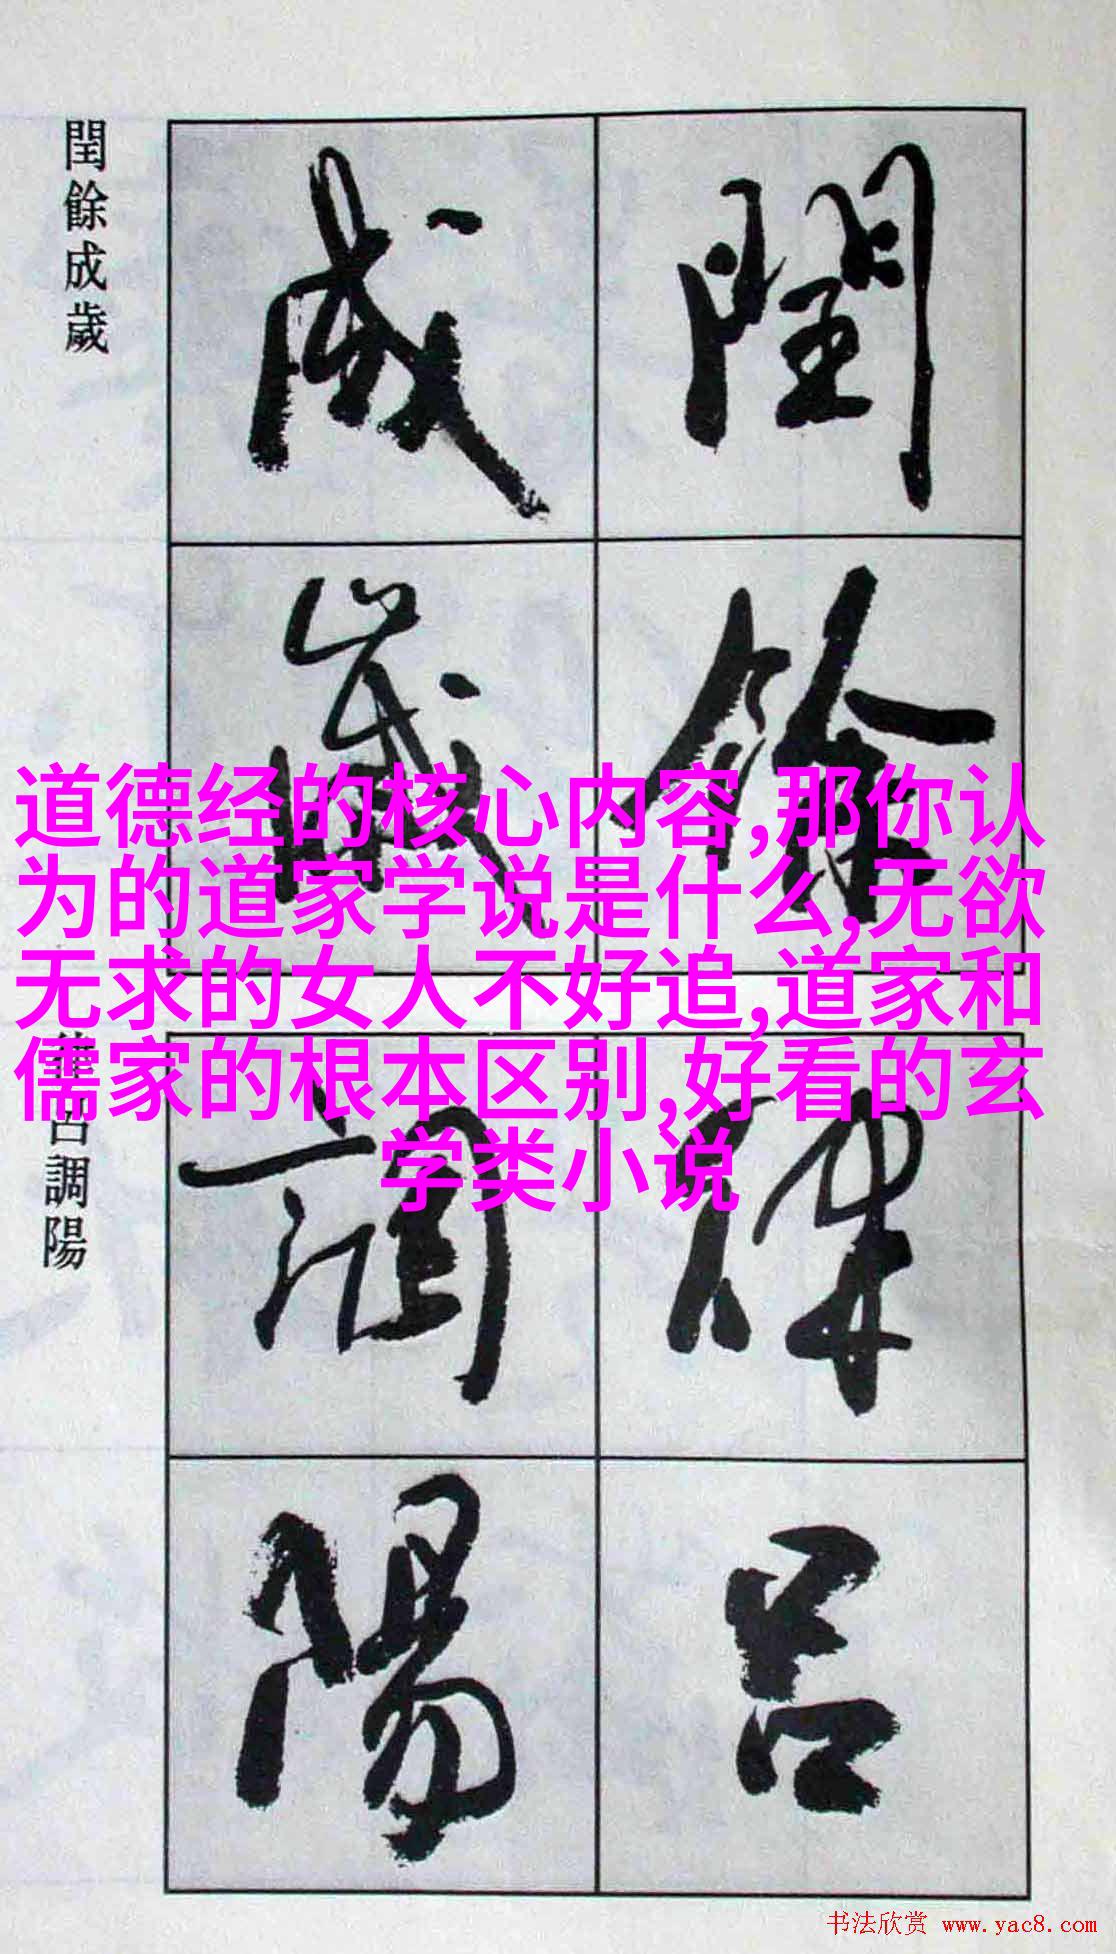 閏餘
成歲
閏餘成歲
道德经的核心内容,那你认
为的道家学说是什么,无欲
无求的女人不好追,道家和
儒家的根本区别,好看的玄
学类小说
律呂
調陽
呂調陽
书法欣赏 www.yac8.com